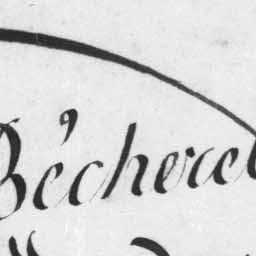 Bécherel